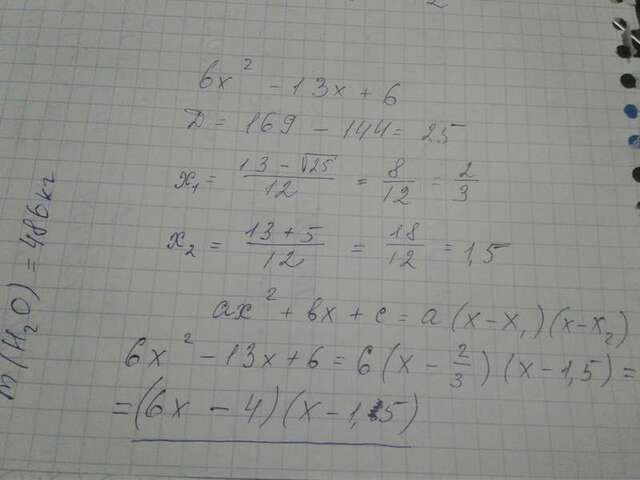 6x² - 13x + 6
Д = 169 - 144 = 25
x₁ = (13 - √25)/12 = 8/12 = 2/3
x₂ = (13 + 5)/12 = 18/12 = 1,5
ax² + bx + c = a(x - x₁)(x - x₂)
6x² - 13x + 6 = 6(x - 2/3)(x - 1,5) =
= (6x - 4)(x - 1,5)
m(H₂O) = 486кг